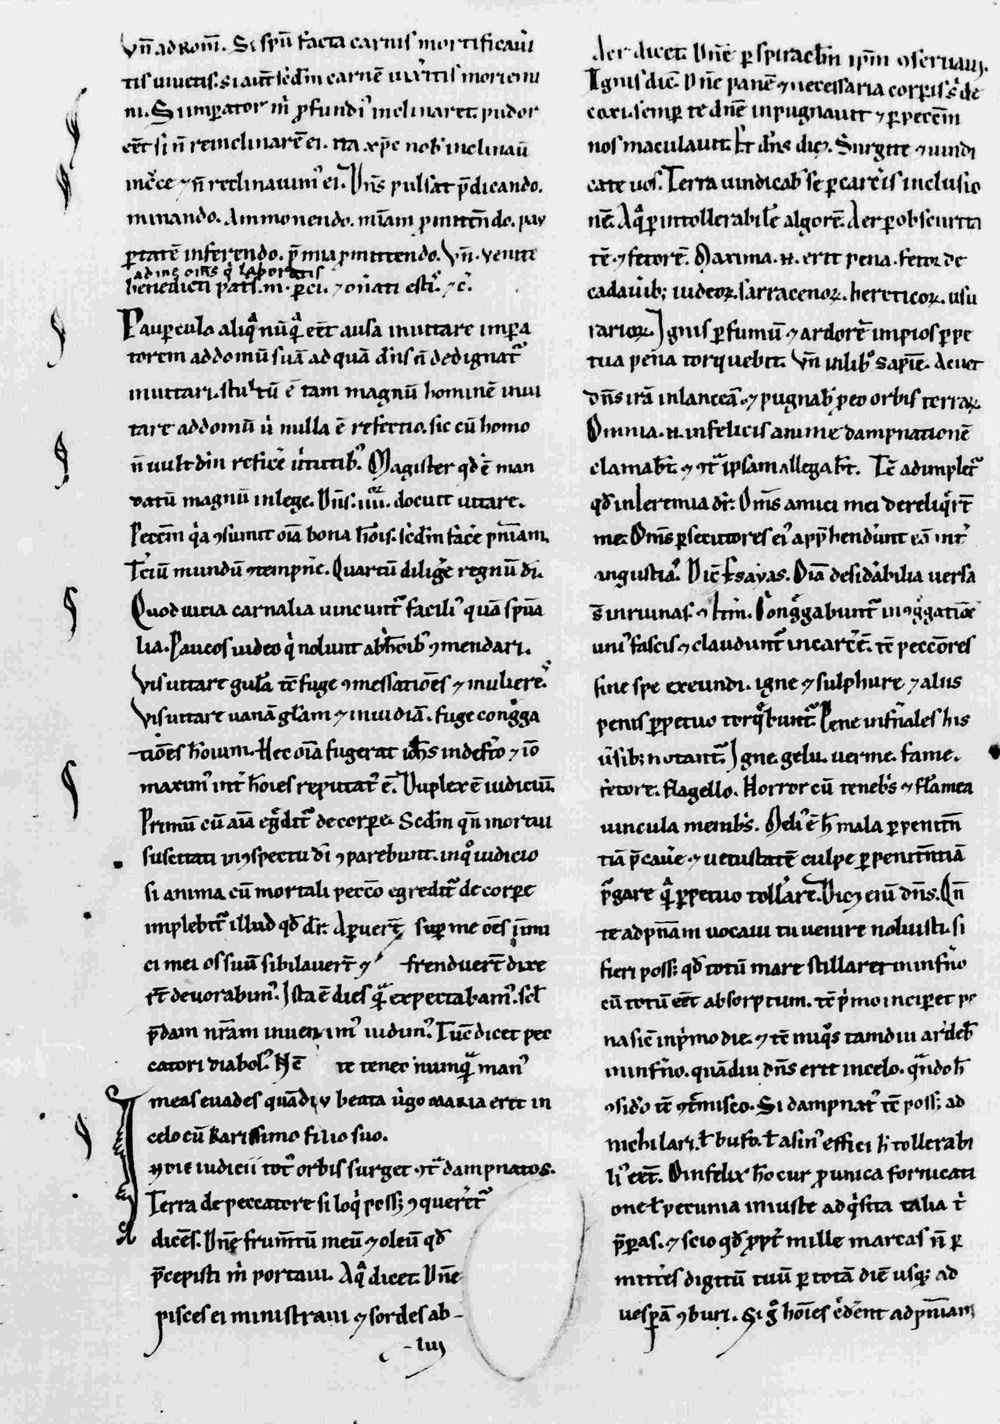 Vn̄ ad Rom̄. Si spū facta carnis mortificaui
tis viuetis. si aūt scd̄m carnē uixitis moriemi
ni. Si imꝑator m̄ ꝓfundi inclinaret. pudor
eēt si n̄ reinclinarē ei. ita xp̄c nob̾ inclinau
in cͬce ⁊ n̄ reclinauim᾽ ei. Dn̄s pulsat p̄dicando.
minando. Ammonendo. mīam ꝓmittēdo. pau
ꝑtatē inferendo. p̄mia ꝓmittendo. Vn̄. venite
ad me om̄s q̇ laboratis
benedicti pat̄s. m. ꝑci. ⁊ on̄ati estis. ⁊ c̄.
Pauꝑcula aliq̄ nūq̄ eēt ausa inuitare imꝑa
torem ad domū suā ad quā dn̄s n̄ dedignat᾽
inuitari. stultū ē tam magnū hominē inui
tare ad domū u̇ nulla ē refectio. sic cū homo
n̄ uult dm̄ reficͤe uͥtutib᾽. Magister qd̄ ē man
datū magnū in lege. Dn̄s. iiii. docuit uitare.
Pecc̄m q̇a ꝯsumit oīa bona hōis. scd̄m facͤe pn̄iam.
Tͨiū mundū ꝯtempnͤe. Quartū diligͤe regnū di.
Quod uicia carnalia uincunt᾽ facili᾽ quā spūa
lia. Paucos uideo q̇ nolunt ab hͦib᾽ ꝯmendari.
Vis uitare gulā tē fuge ꝯmessatiōes ⁊ mulieres.
Vis uitare uanā gl̄am ⁊ inuidiā. fuge cong̊ga
tiōes hōium. Hec oīa fugerat ioh̄s in defto ⁊ iō
maxim᾽ int᾽ hōies reputat᾽ ē. Duplex ē iudiciū.
Primū cū aīa eg̊dit᾽ de corpe. Scd̄m qn̄ mortui
suscitati in ꝯspectu di ꝯparebunt. in qͦ iudicio
si anima cū mortali pecc̄o egredit᾽ de corpe
implebit᾽ illud qd̄ dr̄. Aꝑuerͭ suꝑ me oēs inimi
ci mei os suū sibilauerͭ ⁊ frenduerͭ dixe
rͭ deuorabim᾽. Ista ē dies q̄ expectabam᾽. scl̄
p̄dam nr̄am inuenim᾽ uidim᾽. Tūc dicet pec
catori diabol᾽. Nc̄ te teneo numq̄ man᾽
meas euades quādiu beata uͥgo maria erit in
celo cū karissimo filio suo.
In die iudicii tot᾽ orbis surget ꝯtͣ dampnatos.
Terra de peccatore si loq̇ poss᾽ ꝯquerͭ᾽
dicēs. Dn̄e frumtū meū ⁊ oleū qd̄
p̄cepisti m̄ portaui. Aq̄ dicet. Dn̄e
pisces ei ministraui ⁊ sordes ab-
lui
Aer dicet. Dn̄e ꝑ spiraclm̄ ip̄m ꝯseruaui.
Ignis dic̄. Dn̄e panē ⁊ necessaria corꝑis s̄ de
coxi. semꝑ te dn̄e inpugnauit ⁊ ꝑ pecc̄m
nos maculauit. Et dn̄s dic̄. Surgite ⁊ uindi
cate uos. Terra uindicab᾽ se ꝑ carc̄is inclusio
nē. Aq̄ ꝑ intollerabilē algorē. Aer ꝑ obscurita
tē ⁊ fetorē. Maxima. n. erit pena. fetor de
cadauib᾽ iudeoꝝ. sarracenoꝝ. hereticoꝝ. usu
rarioꝝ. Ignis ꝑ fumū ⁊ ardorē impios ꝑpe
tua pena torquebit. Vn̄ in lib᾽ sapiē. Acuet
dn̄s irā in lanceā. ⁊ pugnab᾽ ꝑ eo orbis terraꝝ.
Omnia. n. infelicis anime dampnationē
clamabt᾽ ⁊ ꝯtͣ ipsam allegabt᾽. Tē adimplet᾽
qd̄ in Ieremia dr̄. Om̄s amici mei dereliq̇rͭ
me. Om̄s ꝑsecutores ei᾽ app̄hendūnt eā int᾽
angustias. Dic̄ ysayas. Oīa desidabilia uersa
s̄ in ruinas. ⁊ Itm̄. Cong̊gabunt᾽ in ꝯg̊gatiōe
uni᾽ fascis ⁊ claudunt᾽ in carc̄e. tē peccōres
sine spe exeundi. igne ⁊ sulphure ⁊ aliis
penis ꝑpetuo torq̄bunt᾽. Pene infn̄ales his
ūsib᾽ notant᾽. Igne. gelu. uerme. fame.
fetore. flagello. Horror cū tenebs ⁊ flamea
uincula membs. Meli᾽ ē h̄ mala ꝑ peniten
tiā p̄cauͤe. ⁊ uetustatē culpe ꝑ peniten̄tiā
pͥgare q̄ ꝑpetuo tollͤare. Dic̄ enī dn̄s. Qn̄
te ad pn̄iam uocaui tu uenire noluisti. si
fieri poss᾽ qd̄ totū mare stillaret in infn̄o
cū totū eēt absorptum. tē pͥmo inciꝑet pe
na sic̄ in pͥmo die. ⁊ tē nuq̊s tamdiu ardeb᾽
in infn̄o. quādiu dn̄s erit in celo. q̄ndo h̄
ꝯsido tē ꝯtͥmisco. Si dampnat᾽ tē poss᾽ ad
nichilari. ł bufo. ł asin᾽ effici h̄ tollerabi
li᾽ eēt. O infelix hō cur ꝓ unica fornicati
one ł pecunia iniuste adq̇sita talia t̄
p̄ꝑas. ⁊ scio qd̄ ꝓpt᾽ mille marcas n̄ ꝑ
mittēs digitū tuū ꝑ totā diē usq᾽ ad
uesꝑā ꝯburi. Si g̊ hōies c̄dēnt ad pn̄iam